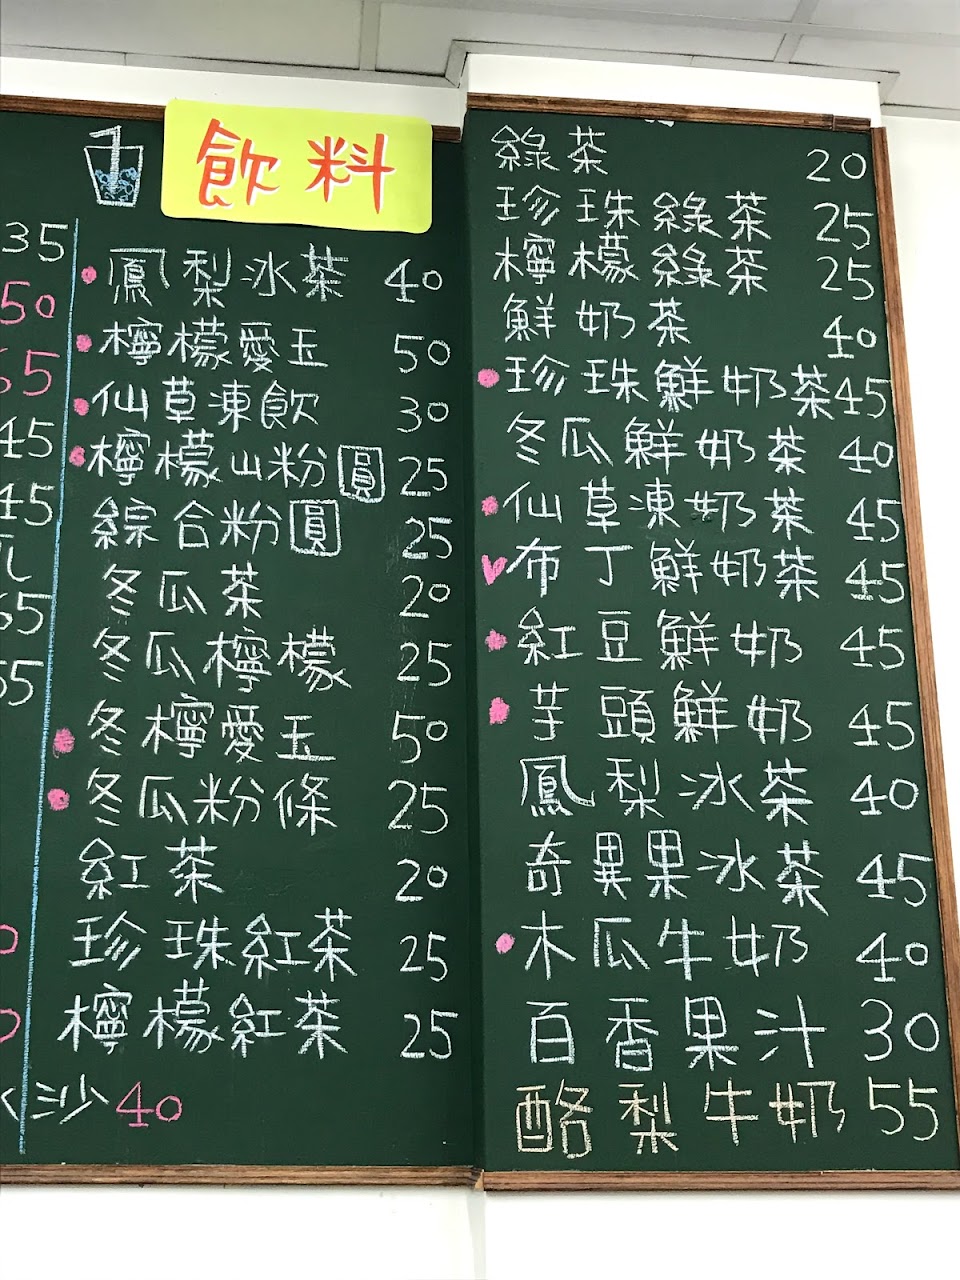 飲料
35
50
65
45
45
65
55
鳳梨冰茶 40
檸檬愛玉 50
仙草凍飲 30
檸檬山粉圓 25
綜合粉圓 25
冬瓜茶 20
冬瓜檸檬 25
冬檸愛玉 50
冬瓜粉條 25
紅茶 20
珍珠紅茶 25
檸檬紅茶 25
沙 40
綠茶 20
珍珠綠茶 25
檸檬綠茶 25
鮮奶茶 40
珍珠鮮奶茶 45
冬瓜鮮奶茶 40
仙草凍奶茶 45
布丁鮮奶茶 45
紅豆鮮奶 45
芋頭鮮奶 45
鳳梨冰茶 40
奇異果冰茶 45
木瓜牛奶 40
百香果汁 30
酪梨牛奶 55